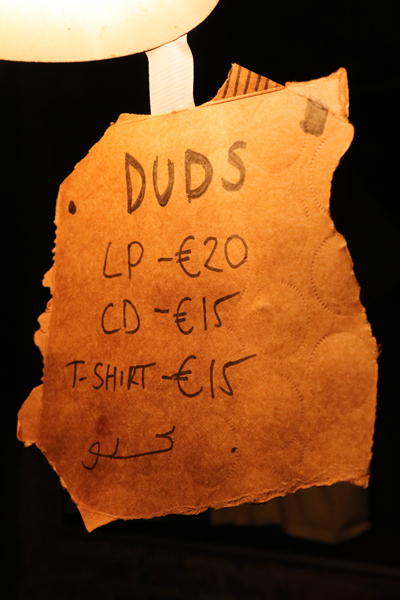 DUDS
LP - €20
CD - €15
T-SHIRT - €15